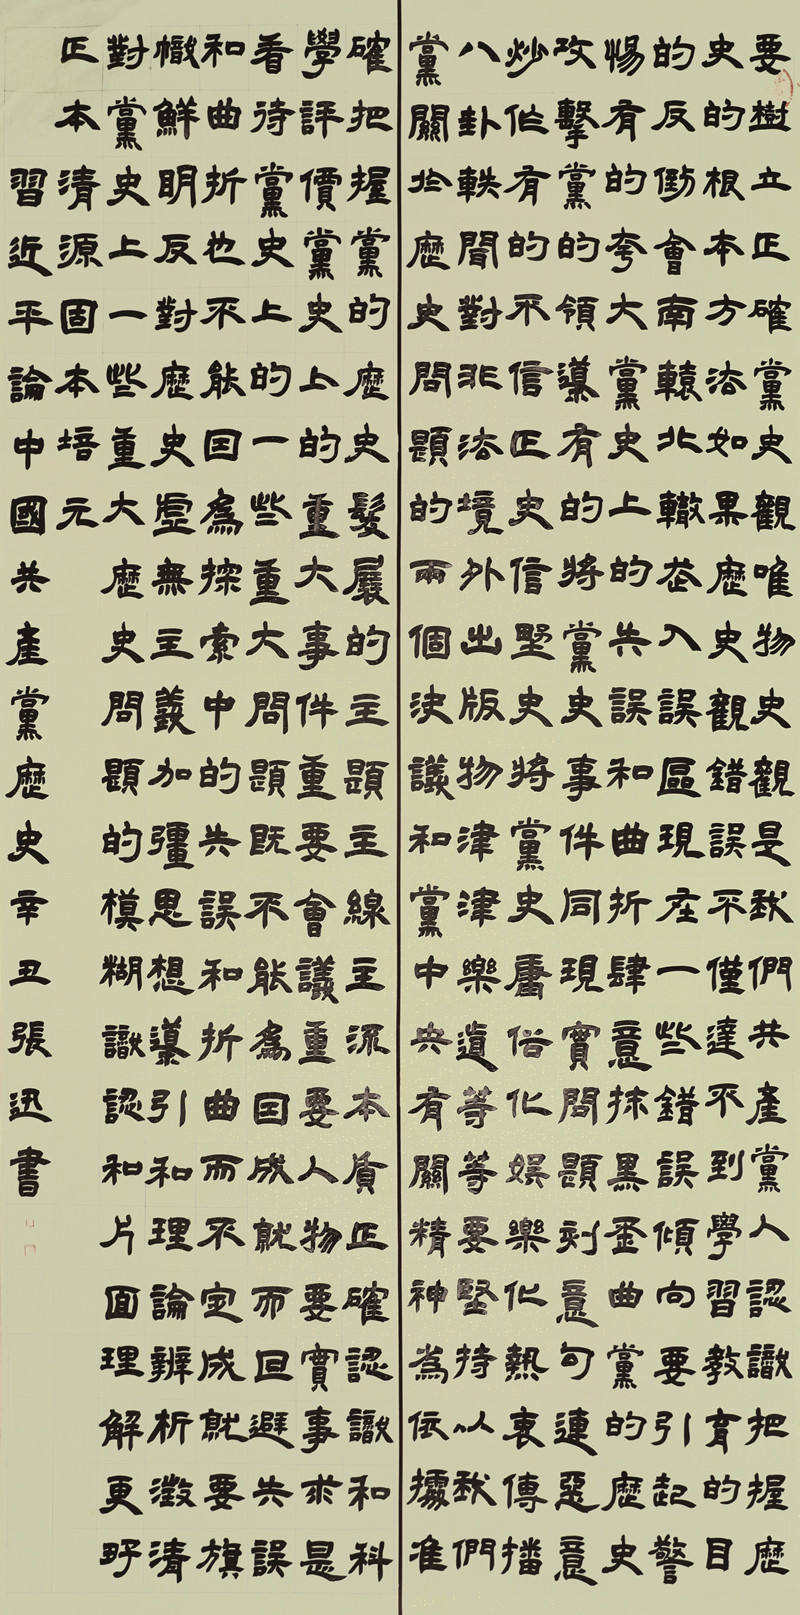 要樹立正確黨史觀唯物史觀是我們共產黨人認識把握歷
史的根本方法如果歷史觀錯誤不僅達不到學習教育的目
的反倒會南轅北轍走入誤區現在一些錯誤傾向要引起警
惕有的夸大黨史上的失誤和曲折肆意抹黑歪曲黨的歷史
攻擊黨的領導有的將黨史事件同現實問題刻意勾連惡意
炒作有的不信正史信野史將黨史庸俗化娛樂化熱衷傳播
八卦軼聞對非法境外出版物津津樂道等等要堅持以我們
黨關於歷史問題的兩個決議和黨中央有關精神為依據准
確把握黨的歷史髮展的主題主線主流本質正確認識和科
學評價黨史上的重大事件重要會議重要人物要實事求是
看待黨史上的一些重大問題既不能為囙成就而回避失誤
和曲折也不能囙為探索中的失誤和折曲而不定成就要旗
幟鮮明反對歷史虛無主義加彊思想導引和理論辨析澂清
對黨史上一些重大歷史問題的模糊識認和片面理解更好
正本清源固本培元
習近平論中國共產黨歷史辛丑張迅書